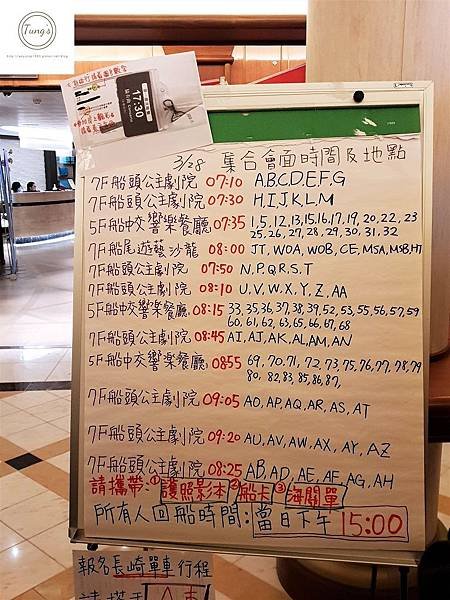 Tung's
17:30
3/28 集合會面時間及地點
7F船頭公主劇院 07:10 A.B.C.D.E.F.G
7F船頭公主劇院 07:30 H.I.J.K.L.M
5F船中交響樂餐廳 07:35 1,5,12,13,15,16,17,19,20,22,23
25,26,27,28,29,30,31,32
7F船尾遊藝沙龍 08:00 JT,WOA,WOB,CE,MSA,MSB,HT
7F船頭公主劇院 07:50 N.P.Q.R.S.T
7F船頭公主劇院 08:10 U.V.W.X.Y.Z,AA
5F船中交響樂餐廳 08:15 33,35,36,37,38,39,52,53,55,56,57,59
60,61,62,63,65,66,67,68
7F船頭公主劇院 08:45 AI,AJ,AK,AL,AM,AN
5F船中交響樂餐廳 0855 69,70,71,72,73,75,76,77,78,79
80,82,83,85,86,87,
7F船頭公主劇院 09:05 AO,AP,AQ,AR,AS,AT
7F船頭公主劇院 09:20 AU,AV,AW,AX,AY,AZ
7F船頭公主劇院 08:25 AB,AD,AE,AF,AG,AH
請攜帶:①護照影本 ②船卡 ③海關單
所有人回船時間:當日下午15:00
報名長崎單車行程